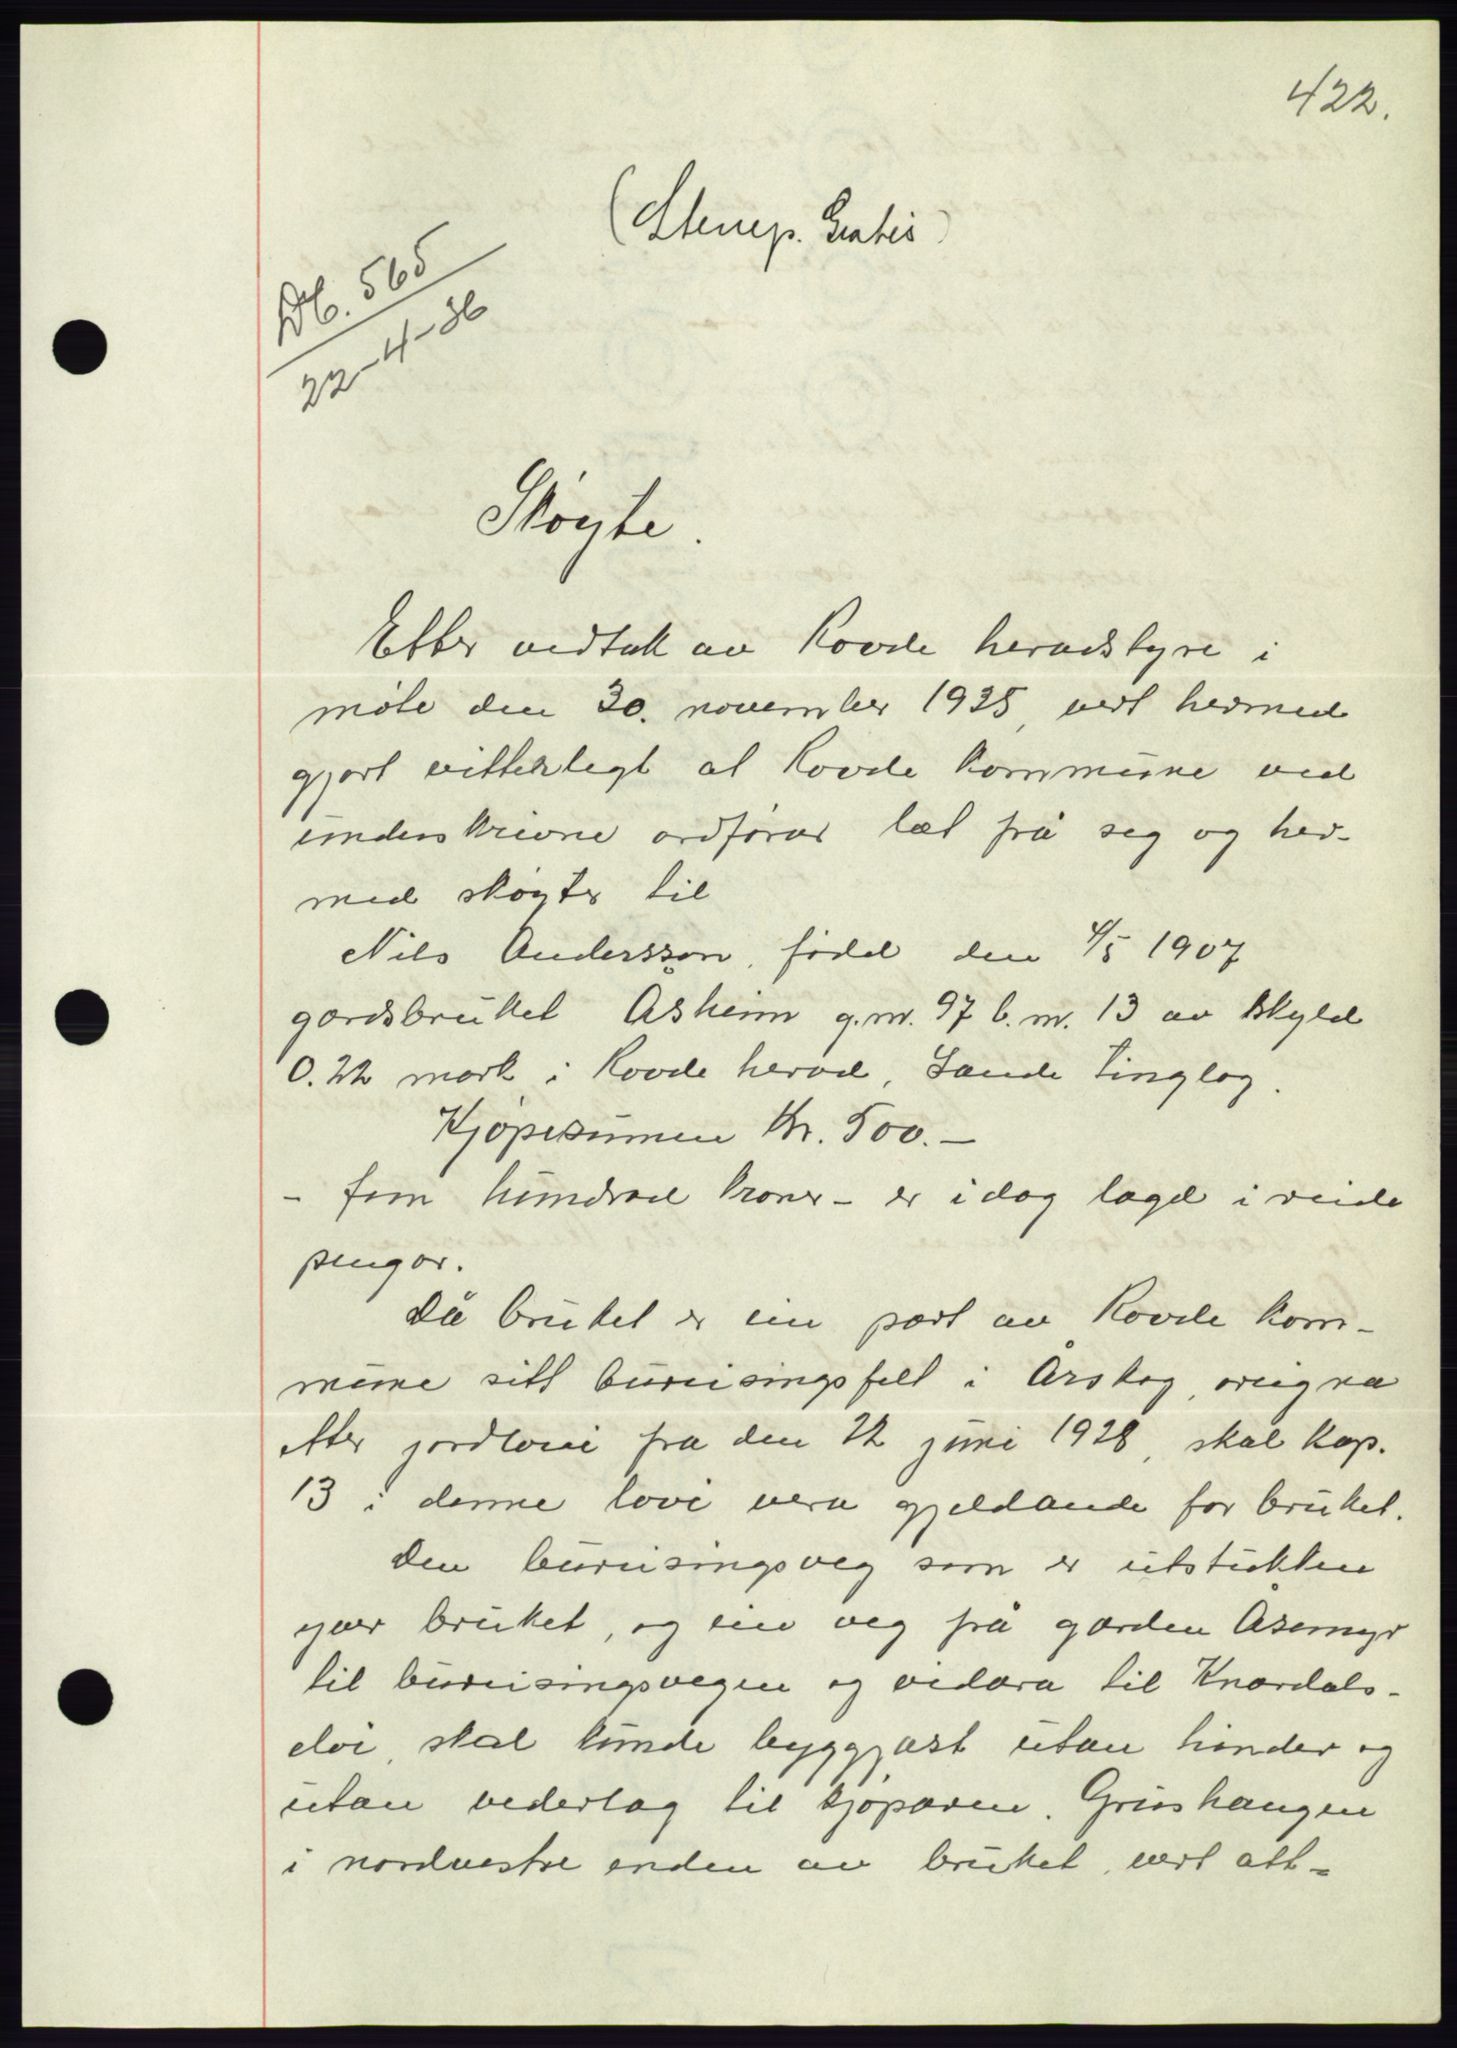 422.
(Stemp. Gratis)
Db. 565
22-4-36
Skøyte.
Etter vedtak av Rovde heradstyre i
møte den 30. november 1935, vert hermed
gjort vitterlegt at Rovde kommune ved
underskrivne ordførar læt frå seg og her-
med skøyter til
Nils Andersson, fødd den 4/5 1907
gardsbruket Åsheim g.nr. 97 b.nr. 13 av skyld
0.22 mark i Rovde herad, Sande tinglag.
Kjøpesumen Kr. 500.-
- fem hundrad kroner - er idag lagd i reide
pengar.
Då bruket er ein part av Rovde kom-
mune sitt bureisingsfelt i Årskog, oreigna
etter jordlovi fra den 22 juni 1928, skal kap.
13 i denne lovi vera gjeldande for bruket.
Den bureisingsveg som er utstukken
yver bruket, og ein veg frå garden Åsemyr
til bureisingsvegen og vidara til Knardals-
elvi, skal kunde byggjast utan hinder og
utan vederlag til kjøparen. Grushaugen
i nordvestre enden av bruket, vert att-